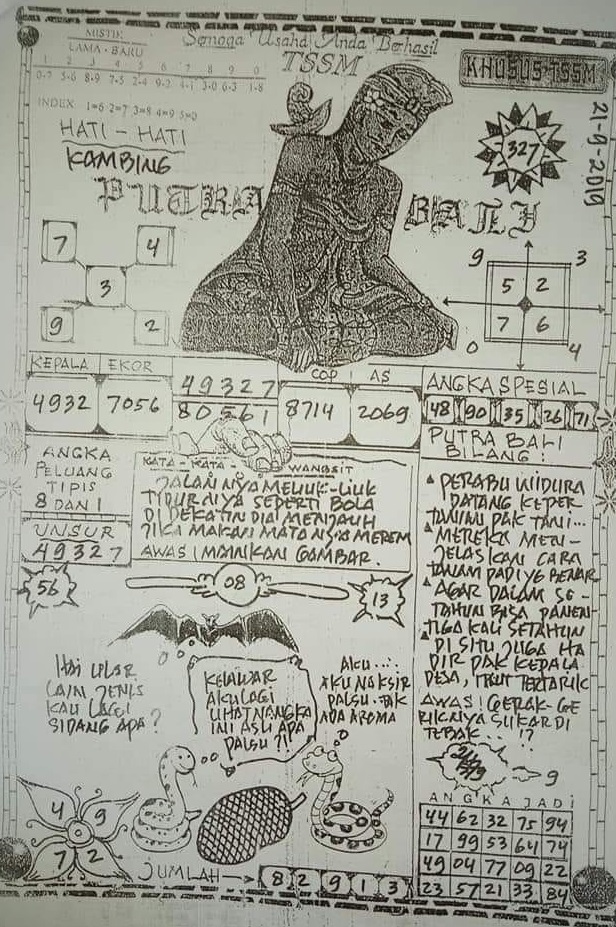 MISTIK
LAMA - BARU
1 2 3 4 5 6 7 8 9 0
0-7 5-6 8-9 7-5 2-4 9-2 6-1 3-0 6-3 1-8
INDEX 1=6 2=7 3=8 4=9 5=0
Semoga Usaha Anda Berhasil
TSSM
KHUSUS TSSM
21-9-2019
327
HATI - HATI
KAMBING
PUTRA BALI
7 4
3
9 2
9 3
5 2
7 6
0 4
KEPALA EKOR
4932 7056
49327
80561
COP AS
8714 2069
ANGKA SPESIAL
48 90 35 26 71
ANGKA
PELUANG
TIPIS
8 DAN 1
UNSUR
49327
KATA - KATA - WANGSIT
JALANNYA MELIUK-LIUK
TIDURNYA SEPERTI BOLA
DI DEKATIN DIA MENJAUH
JIKA MAKAN MATANYA MEREM
AWAS! MAINKAN GAMBAR.
56
08
13
PUTRA BALI
BILANG :
PERABU WIDURA
DATANG KEPER
TANIAN PAK TANI...
MEREKA MEN-
JELASKAN CARA
TANAM PADI YG BENAR
AGAR DALAM SE-
TAHUN BISA PANEN
TIGA KALI SETAHUN
DI SITU JUGA HA
DIR PAK KEPALA
DESA, ITUT TERTARIK
AWAS! GERAK-GE
RIKNYA SUKAR DI
TEBAK...!?
9
HAI ULAR
LAIN JENIS
KAU LAGI
SIDANG APA?
KELAWAR
AKU LAGI
LIHAT NANGKA
INI ASLI APA
PALSU?!
AKU....
AKU NAKSIR
PALSU. TAK
ADA AROMA
4 9
7 2
JUMLAH → 8 2 9 1 3
ANGKA JADI
44 62 32 75 94
17 99 53 64 74
49 04 77 09 22
23 57 21 33 84